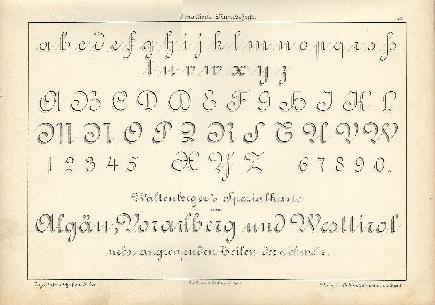 a b c d e f g h i j k l m n o p q r s ß
t u v w x y z
A B C D D E F G H I K L
M N O P Q R S T U V W
1 2 3 4 5 X Y Z 6 7 8 9 0.
Waltenberger's Spezialkarte
von
Algäu, Vorarlberg und Westtirol
nebst angrenzenden Teilen der Schweiz.